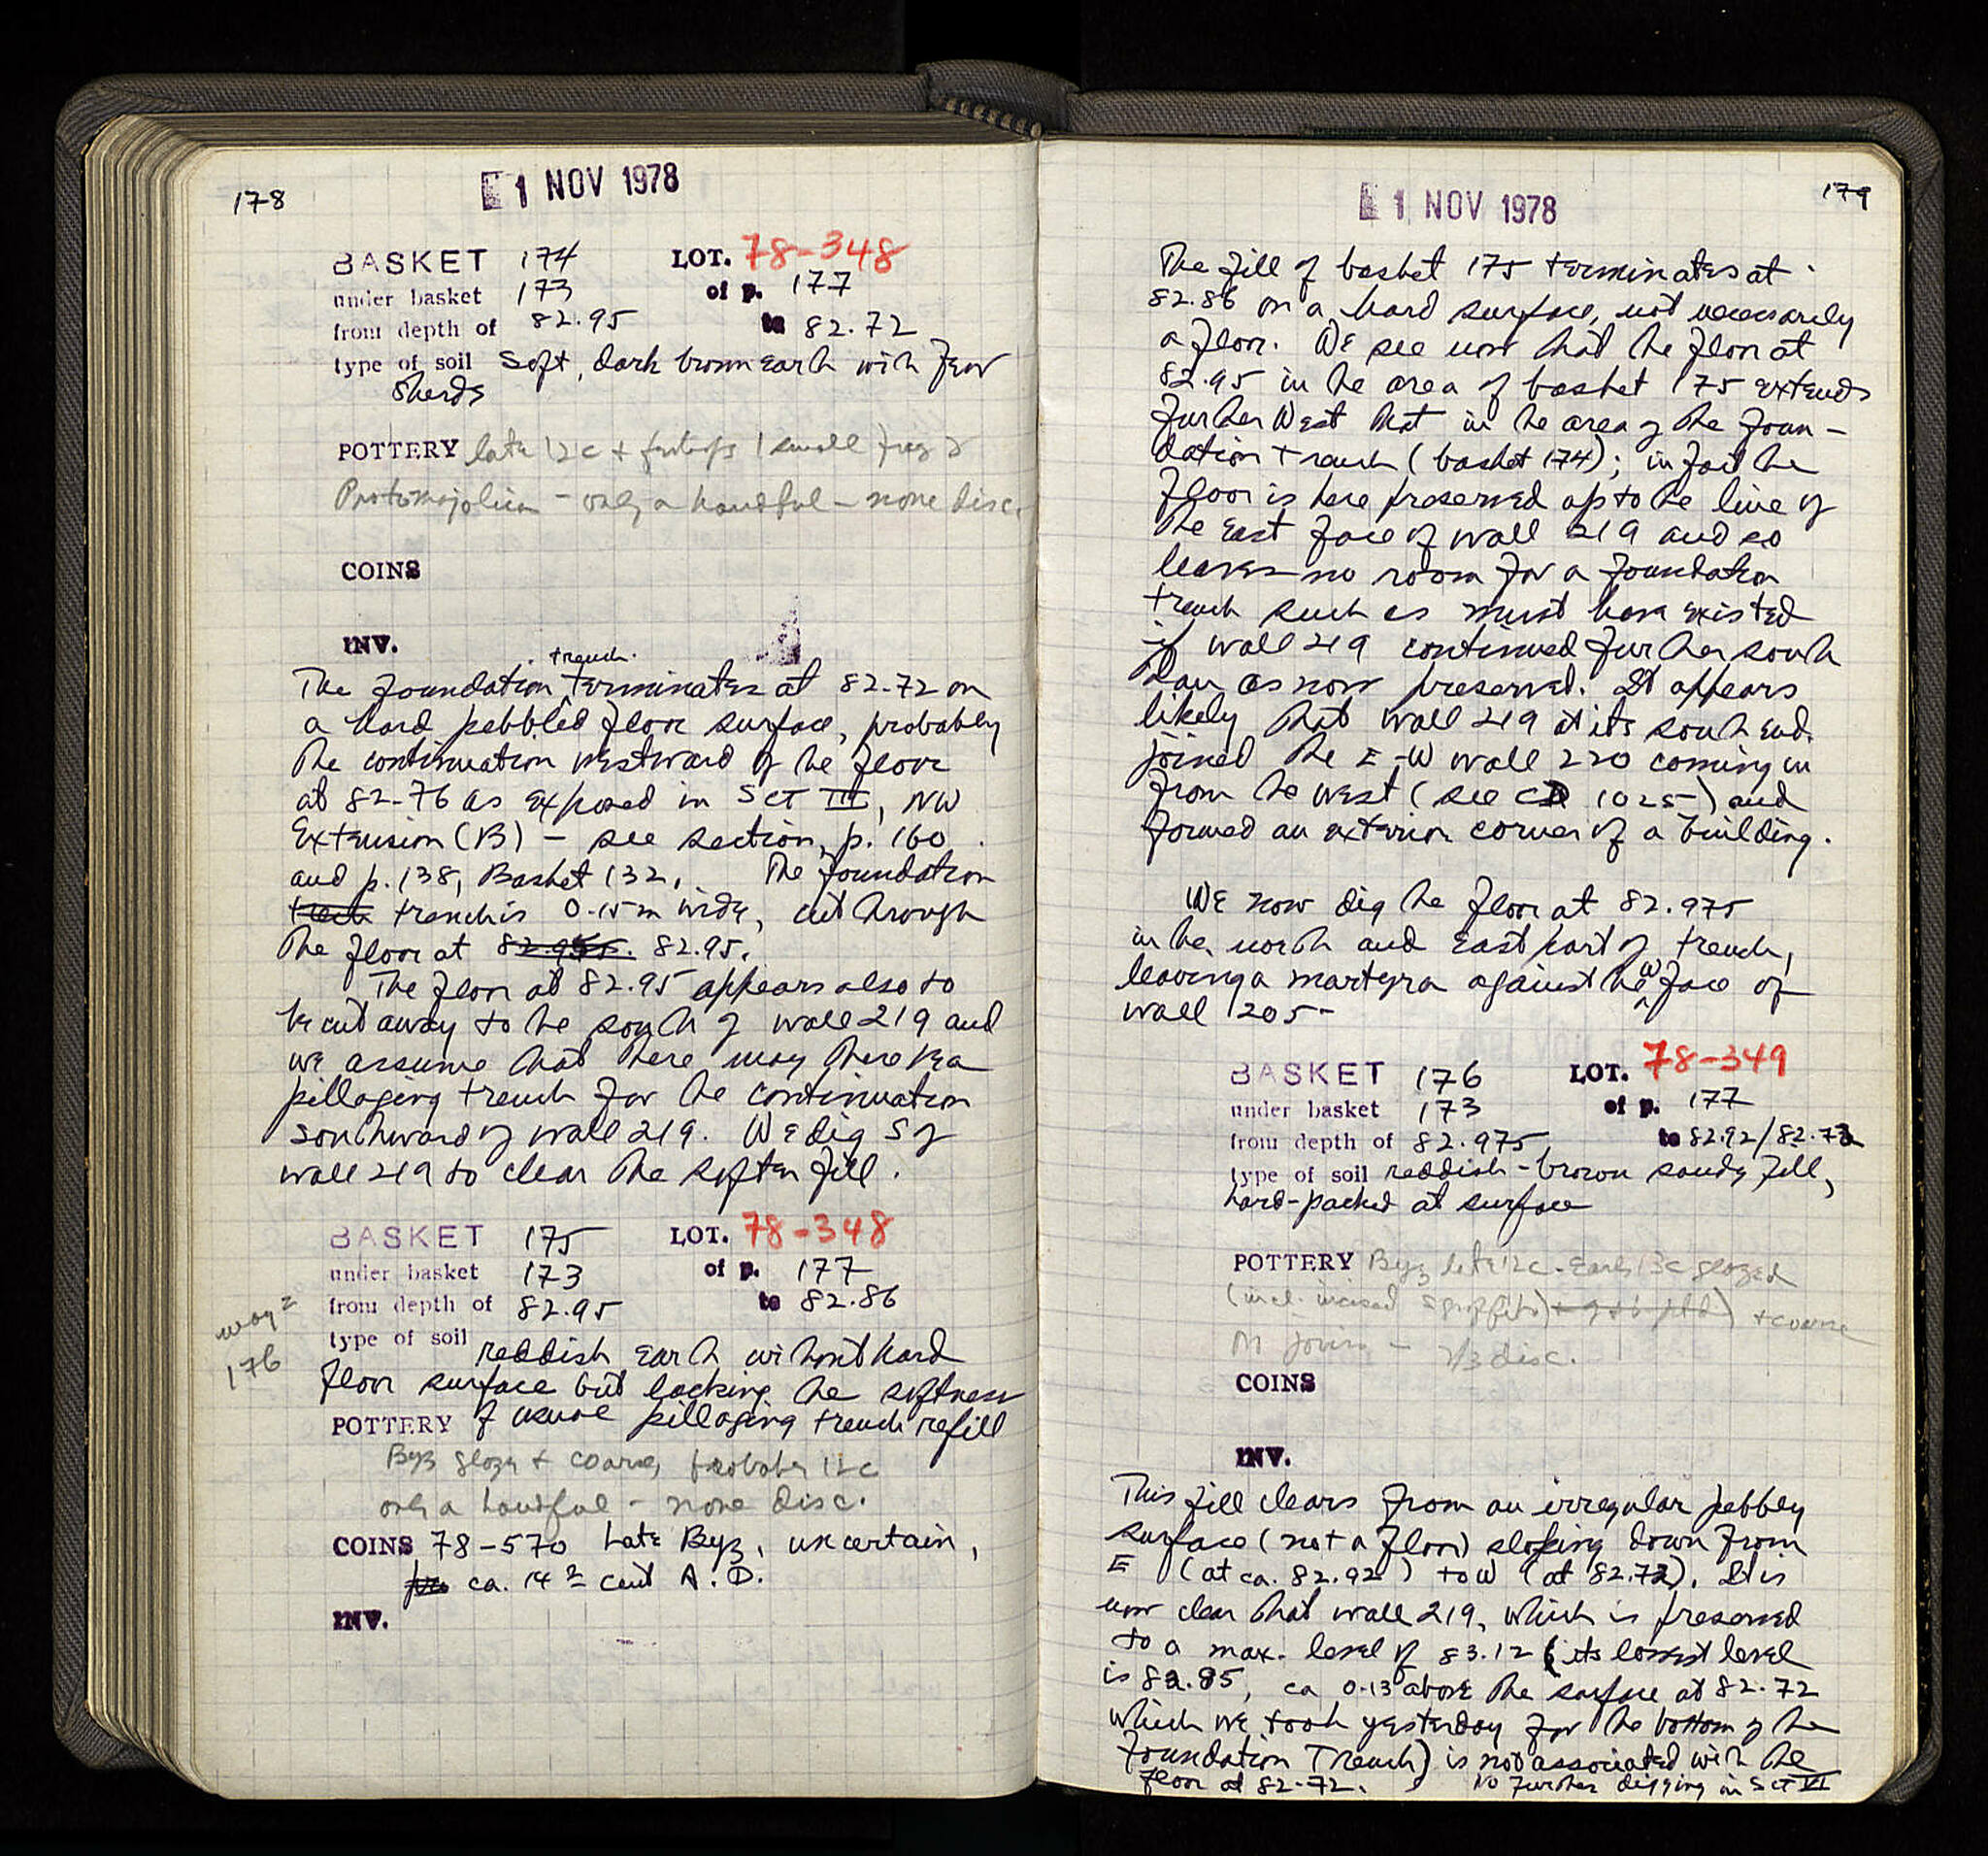 178
1 NOV 1978
BASKET 174 LOT. 78-348
under basket 173 of p. 177
from depth of 82.95 to 82.72
type of soil Soft, dark brown earth with few
sherds
POTTERY late 12c + perhaps 1 small frag
Protomajolica - only a handful - none disc.
COINS
INV.
trench.
The foundation terminates at 82.72 on
a hard pebbled floor surface, probably
the continuation westward of the floor
at 82.76 as exposed in Sct III, NW
Extension (B) - see section, p. 160
and p. 138, Basket 132. The foundation
trench is 0.15m wide, cut through
the floor at 82.95.
The floor at 82.95 appears also to
be cut away to the south of wall 219 and
we assume that there may there be a
pillaging trench for the continuation
southward of wall 219. We dig S of
wall 219 to clear the softer fill.
BASKET 175 LOT. 78-348
under basket 173 of p. 177
from depth of 82.95 to 82.86
type of soil reddish earth without hard
176
floor surface but lacking the softness
POTTERY of usual pillaging trench refill
Byz glaze + coarse, probably 12c
only a handful - none disc.
COINS 78-570 Late Byz, uncertain,
ca. 14th cent A.D.
INV.
1 NOV 1978
179
The fill of basket 175 terminates at
82.86 on a hard surface, not necessarily
a floor. We see now that the floor at
82.95 in the area of basket 175 extends
further West that in the area of the foun-
dation trench (basket 174); in fact the
floor is here preserved up to the line of
the East face of wall 219 and so
leaves no room for a foundation
trench such as must have existed
if wall 219 continued further south
than as now preserved. It appears
likely that wall 219 at its south end
joined the E-W wall 220 coming in
from the west (see CD 1025) and
formed an exterior corner of a building.
We now dig the floor at 82.975
in the north and East part of trench,
leaving a martyra against the W face of
wall 205-
BASKET 176 LOT. 78-349
under basket 173 of p. 177
from depth of 82.975 to 82.92/82.72
type of soil reddish-brown sandy fill,
hard-packed at surface
POTTERY Byz late 12c - Early 13c glazed
(incl. incised sgraffito) + coarse
M joins - 2/3 disc.
COINS
INV.
This fill clears from an irregular pebbly
surface (not a floor) sloping down from
E (at ca. 82.92) to W (at 82.72). It is
now clear that wall 219, which is preserved
to a max. level of 83.12 (its lowest level
is 82.85, ca 0.13 above the surface at 82.72
which we took yesterday for the bottom of the
foundation Trench) is not associated with the
floor at 82.72. No further digging in Sct VI